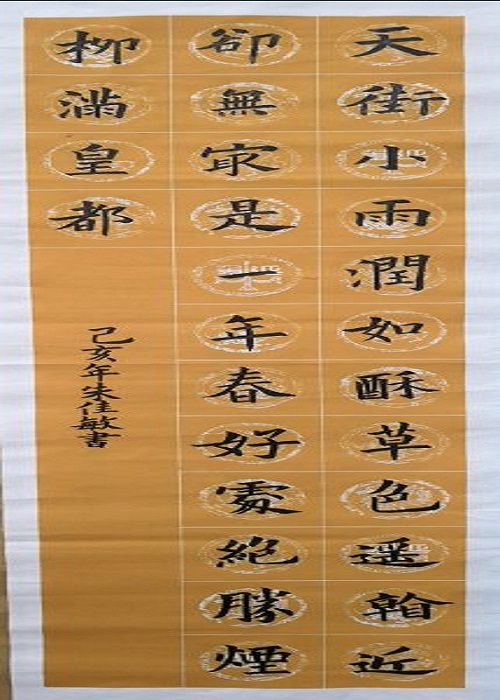 天街小雨潤如酥草色遥翰近
卻無㝡是一年春好處絕勝煙
柳滿皇都
己亥年朱佳敏書